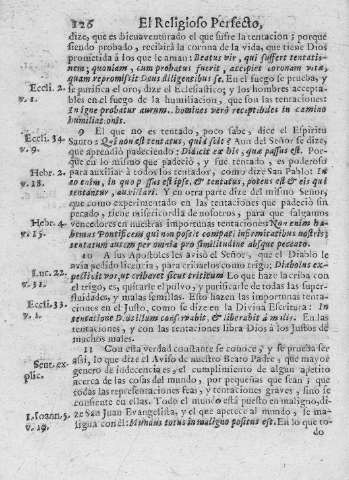 126 El Religioso Perfecto,
dize, que es bienaventurado el que sufre la tentacion; porque
siendo probado, recibirá la corona de la vida, que tiene Dios
prometida à los que le aman: Beatus vir, qui suffert tentatio-
nem; quoniam, cum probatus fuerit, accipiet coronam vitæ,
quam repromissit Deus diligentibus se. En el fuego se prueba, y
Eccli. 2. se purifica el oro, dize el Eclesiastico; y los hombres accepta-
v. 1. bles en el fuego de la humiliacion, que son las tentaciones:
In igne probatur aurum. homines verò receptibiles in camino
humiliationis.
Eccli. 34. 9 El que no es tentado, poco sabe, dice el Espiritu
v. 9. Santo: Qui non est tentatus, quid scit? Aun del Señor se dize,
que aprendió padeciendo: Didicit ex his, quæ passus est. Por-
que en lo mismo que padeció, y fue tentado, es poderoso
Hebr. 2. para auxiliar à todos los tentados, como dize San Pablo: In
v. 18. eo enim, in quo passus est ipse, & tentatus, potens est & eis qui
tentantur, auxiliari. Y en otra parte dize del mismo Señor,
que como experimentado en las tentaciones que padeció sin
pecado, tiene misericordia de nosotros, para que salgamos
Hebr. 4. vencedores en nuestras importunas tentaciones: Non enim ha-
v. 15. bemus Pontificem qui non possit compati infirmitatibus nostris;
tentatum autem per omnia pro similitudine absque peccato.
10 A sus Apostoles les avisó el Señor, que el Diablo le
avia pedido licencia, para crivarlos como trigo; Diabolus ex-
Luc. 22. petivit vos, ut cribaret sicut triticum. Lo que haze la criva con el
v. 31. trigo, es, quitarle el polvo, y purificarle de todas las super-
fluidades, y malas semillas. Esto hazen las importunas tenta-
Eccli. 33. ciones en el Justo, como se dize en la Divina Escritura: In
v. 1. tentatione Deus illum conservabit, & liberabit à malis. En las
tentaciones, y con las tentaciones libra Dios à los Justos de
muchos males.
11 Con esta verdad constante se conoce, y se prueba ser
Sent. ex- assi, lo que dize el Aviso de nuestro Beato Padre, que mayor
plic. genero de indecencia es, el cumplimiento de algun apetito
acerca de las cosas del mundo, por pequeñas que sean; que
todas las representaciones feas, y tentaciones graves, sino se
consiente en ellas. Todo el mundo està puesto en maligno, di-
1. Ioann. 5. ze San Juan Evangelista, y el que apetece al mundo, se ma-
v. 19. ligna con el: Mundus totus in maligno positus est. En lo que to-
do